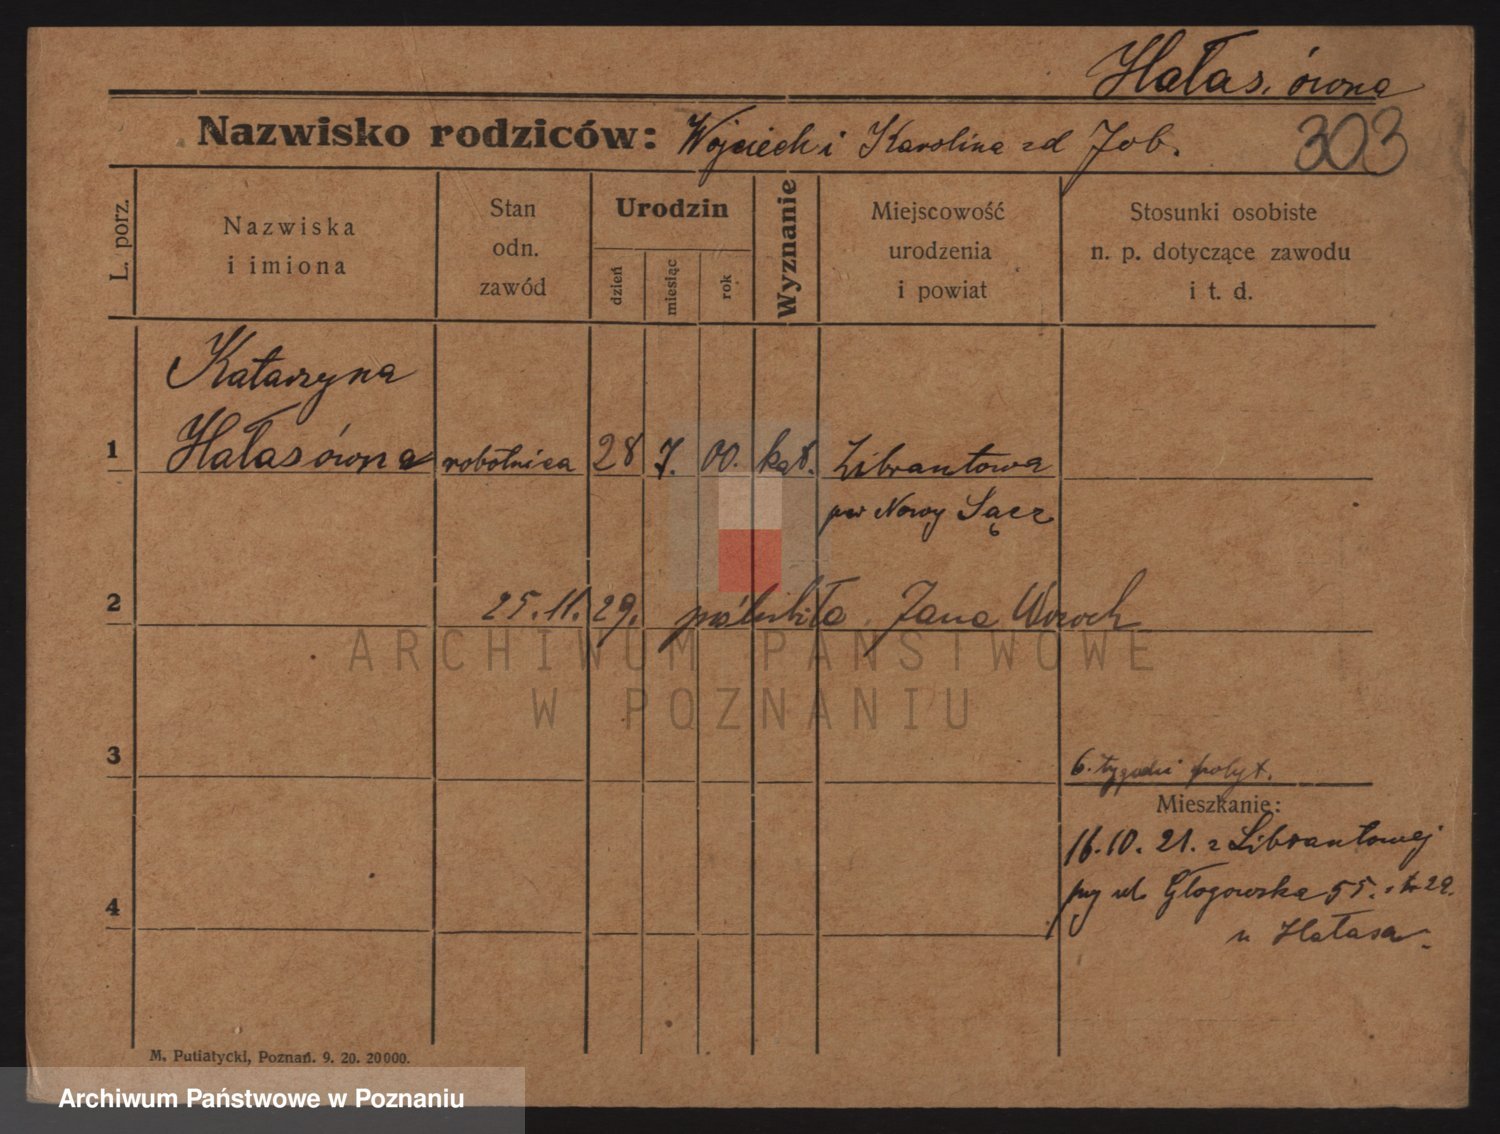 Hałasówna
Nazwisko rodziców: Wojciech i Karolina zd Job.
303
L. porz.
Nazwiska
i imiona
Stan
odn.
zawód
Urodzin
dzień
miesiąc
rok
Wyznanie
Miejscowość
urodzenia
i powiat
Stosunki osobiste
n. p. dotyczące zawodu
i t. d.
Katarzyna
1 Hałasówna robotnica 28 7. 00. kat. Librantowa
pw Nowy Sącz
2 25.11.29. poślubiła Jana Woroch
ARCHIWUM PAŃSTWOWE
W POZNANIU
3 6. tygodni pobyt.
Mieszkanie:
16.10.21. z Librantowej
4 przy ul. Głogowska 55.
u Hałasa
M. Putiatycki, Poznań. 9. 20. 20000.
Archiwum Państwowe w Poznaniu